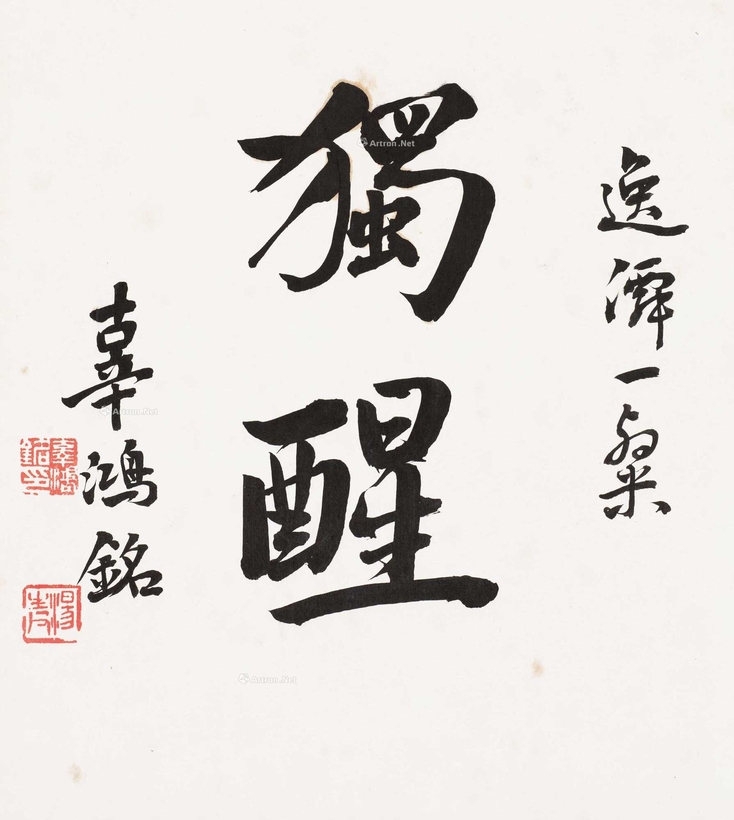 逸潭一粲
獨醒
辜鴻銘
辜鴻銘印
湯生
Artron.Net
Artron.Net
Artron.Net